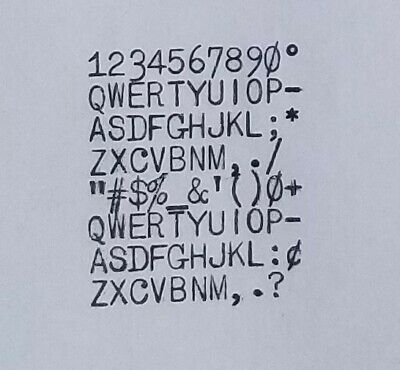 1234567890°
QWERTYUIOP-
ASDFGHJKL;*
ZXCVBNM,./
"#$%_&'()Ø+
QWERTYUIOP-
ASDFGHJKL:¢
ZXCVBNM,.?